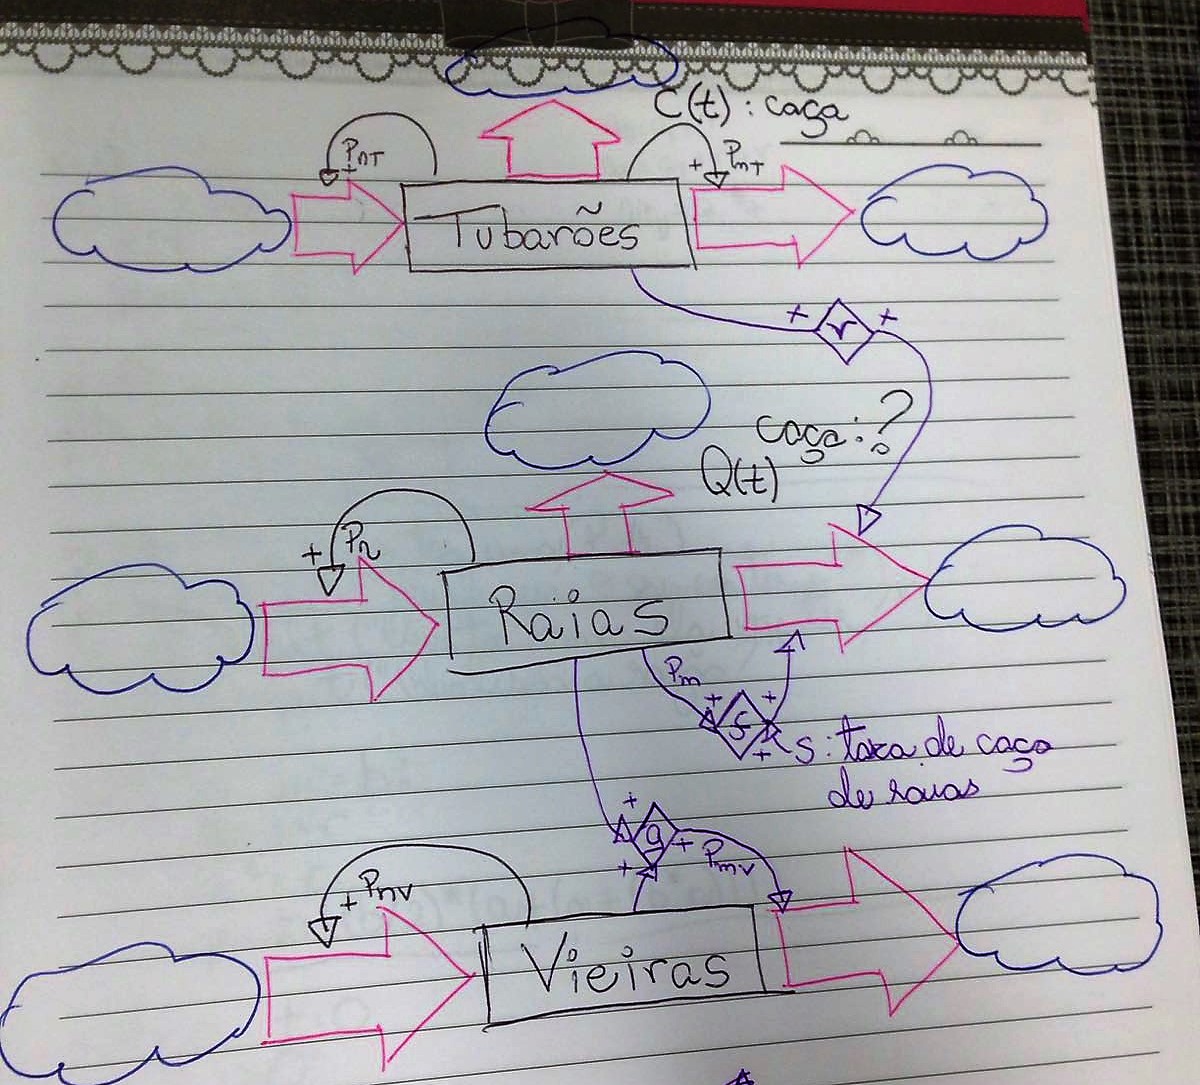 C(t) : caça
PnT
+
+
PmT
Tubarões
+
r
+
caça: ?
Q(t)
+
Pn
Raias
Pm
+
+
s
+
s: taxa de caça
de raias
+
g
+
+
Pmv
+
Pnv
Vieiras